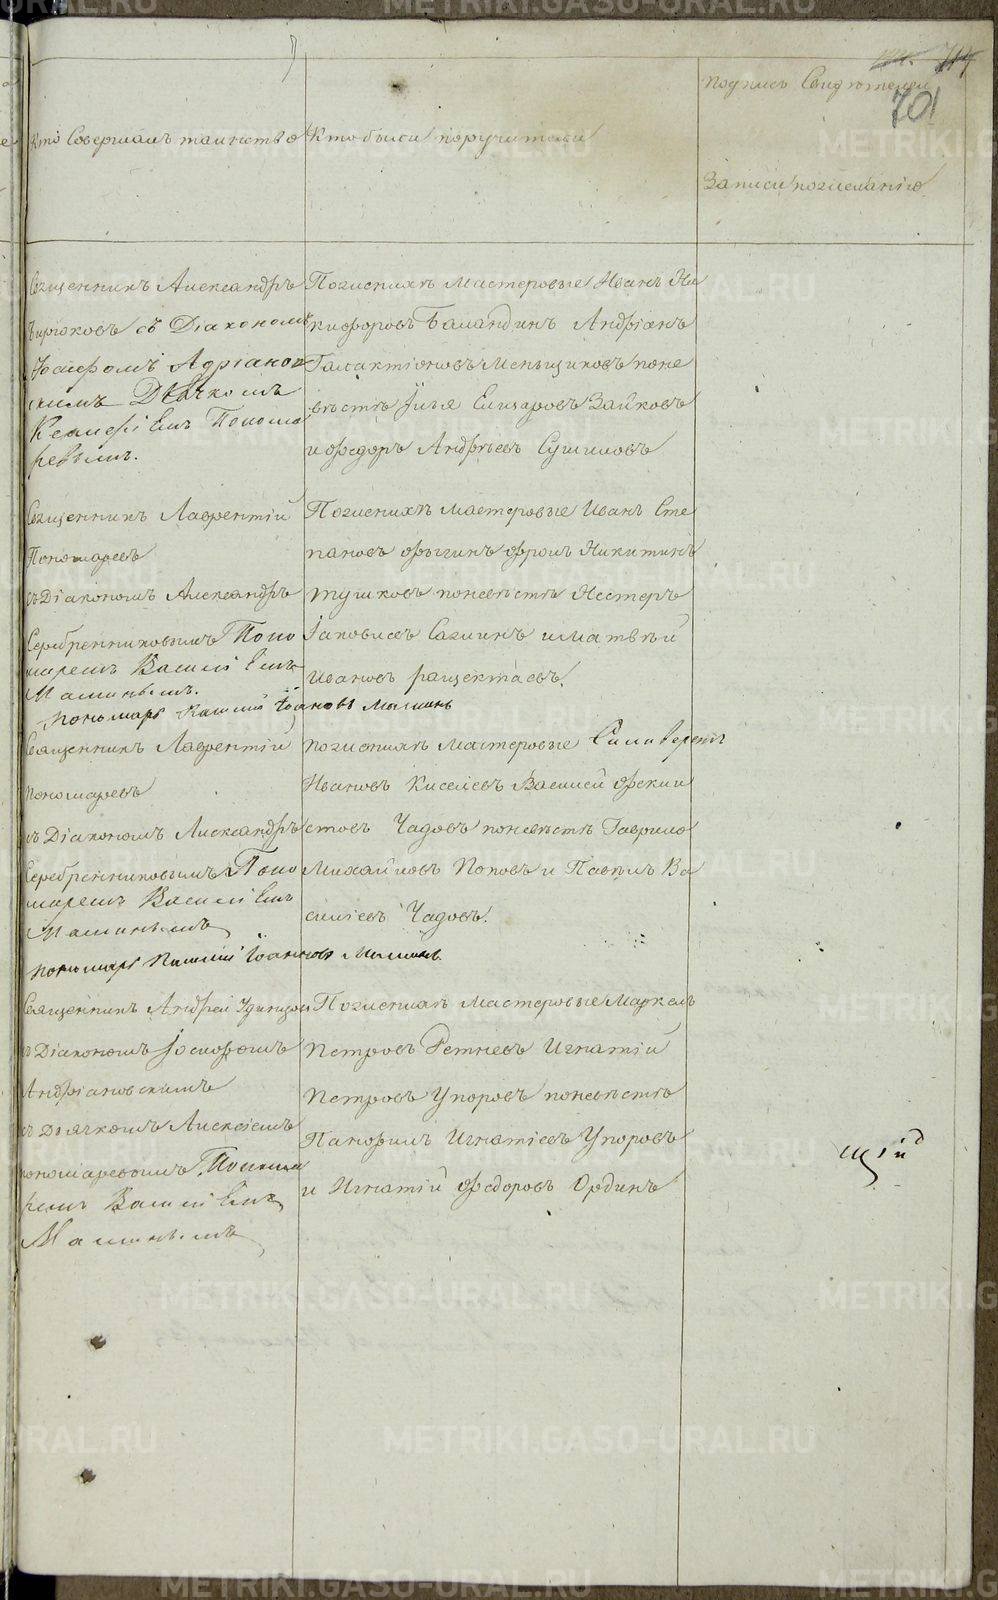 714
701
Кто Совершалъ таинство
Кто были поручители
подпись Свидѣтелей
Записи по желанію
Священникъ Александръ
Бирюковъ съ Діакономъ
Іосифомъ Адріанов
скимъ Дьячкомъ
Понома
ревымъ.
По женихѣ мастеровые Иванъ Ни
кифоровъ Баландинъ Андріанъ
Галактіоновъ Меньщиковъ по не
вѣстѣ Илья Елизаровъ Зайковъ
и Федоръ Андрѣевъ Сушиловъ
Священникъ Лаврентій
Пономаревъ
съ Діакономъ Александръ
Серебренниковымъ Поно
маремъ Василіемъ
Малинымъ.
пономарь Василій Іоанновъ Малинъ
По женихѣ мастеровые Иванъ Сте
пановъ Фролъ Никитинъ
тушковъ по невѣстѣ Нестеръ
Іаковлевъ и Матвѣй
Ивановъ ращектаевъ.
Священникъ Лаврентій
пономаревъ
съ Діакономъ Александръ
Серебренниковымъ Поно
маремъ Василіемъ
Малинымъ
пономарь Василій Іоанновъ Малинъ
по женихѣ мастеровые Селиверстъ
Ивановъ Киселевъ Василей Фекли
стовъ Чадовъ по невѣстѣ Гаврило
Михайловъ Поповъ и Павелъ Ва
сильевъ Чадовъ.
Священникъ Андрей Удинцов
съ Діакономъ Іосифомъ
Андріановскимъ
съ Дьячкомъ Алексіемъ
пономаревымъ Понома
ремъ Василіемъ
Малинымъ
По женихѣ мастеровые Маркелъ
Петровъ Ретневъ Игнатій
Петровъ Упоровъ по невѣстѣ
Панфилъ Игнатіевъ Упоровъ
и Игнатій Федоровъ Ординъ
щій
METRIKI.GASO-URAL.RU